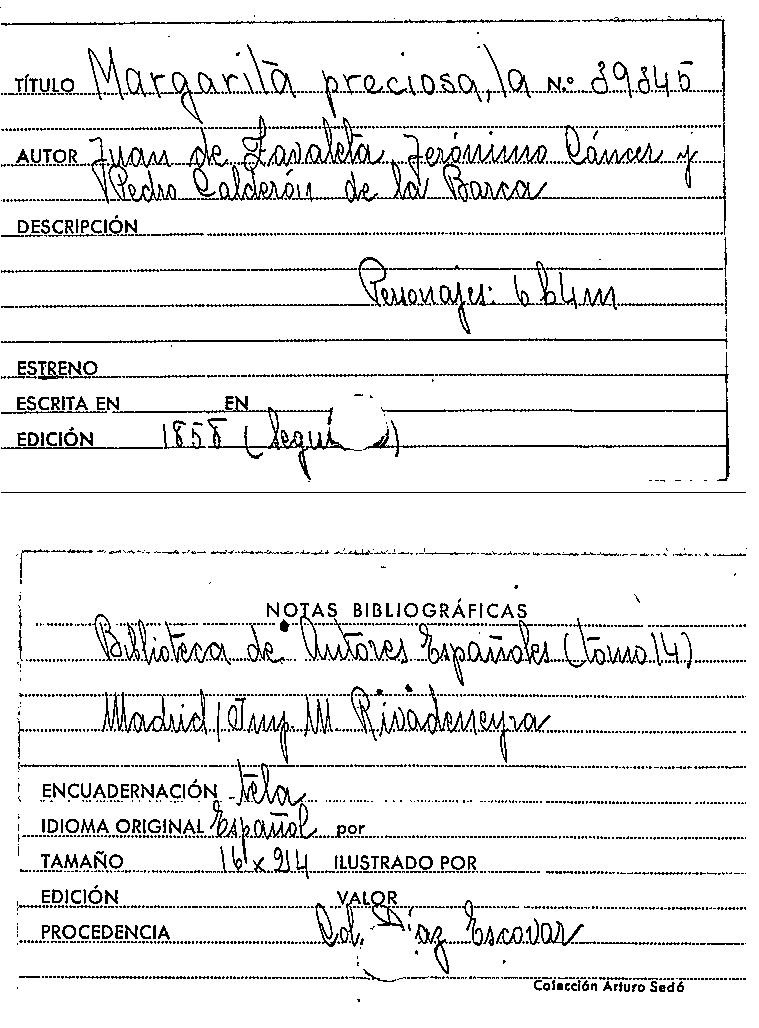 TÍTULO Margarita preciosa, la N.º 39345
AUTOR Juan de Zavaleta, Jerónimo Cáncer y
Pedro Calderón de la Barca
DESCRIPCIÓN
Personajes: 6 h 4 m
ESTRENO
ESCRITA EN EN
EDICIÓN 1858 ( )
NOTAS BIBLIOGRÁFICAS
Biblioteca de Autores Españoles (tomo 14)
Madrid / Imp. M. Rivadeneyra
ENCUADERNACIÓN tela
IDIOMA ORIGINAL Español por
TAMAÑO 16 x 24 ILUSTRADO POR
EDICIÓN VALOR
PROCEDENCIA Col. Díaz Escovar
Colección Arturo Sedó